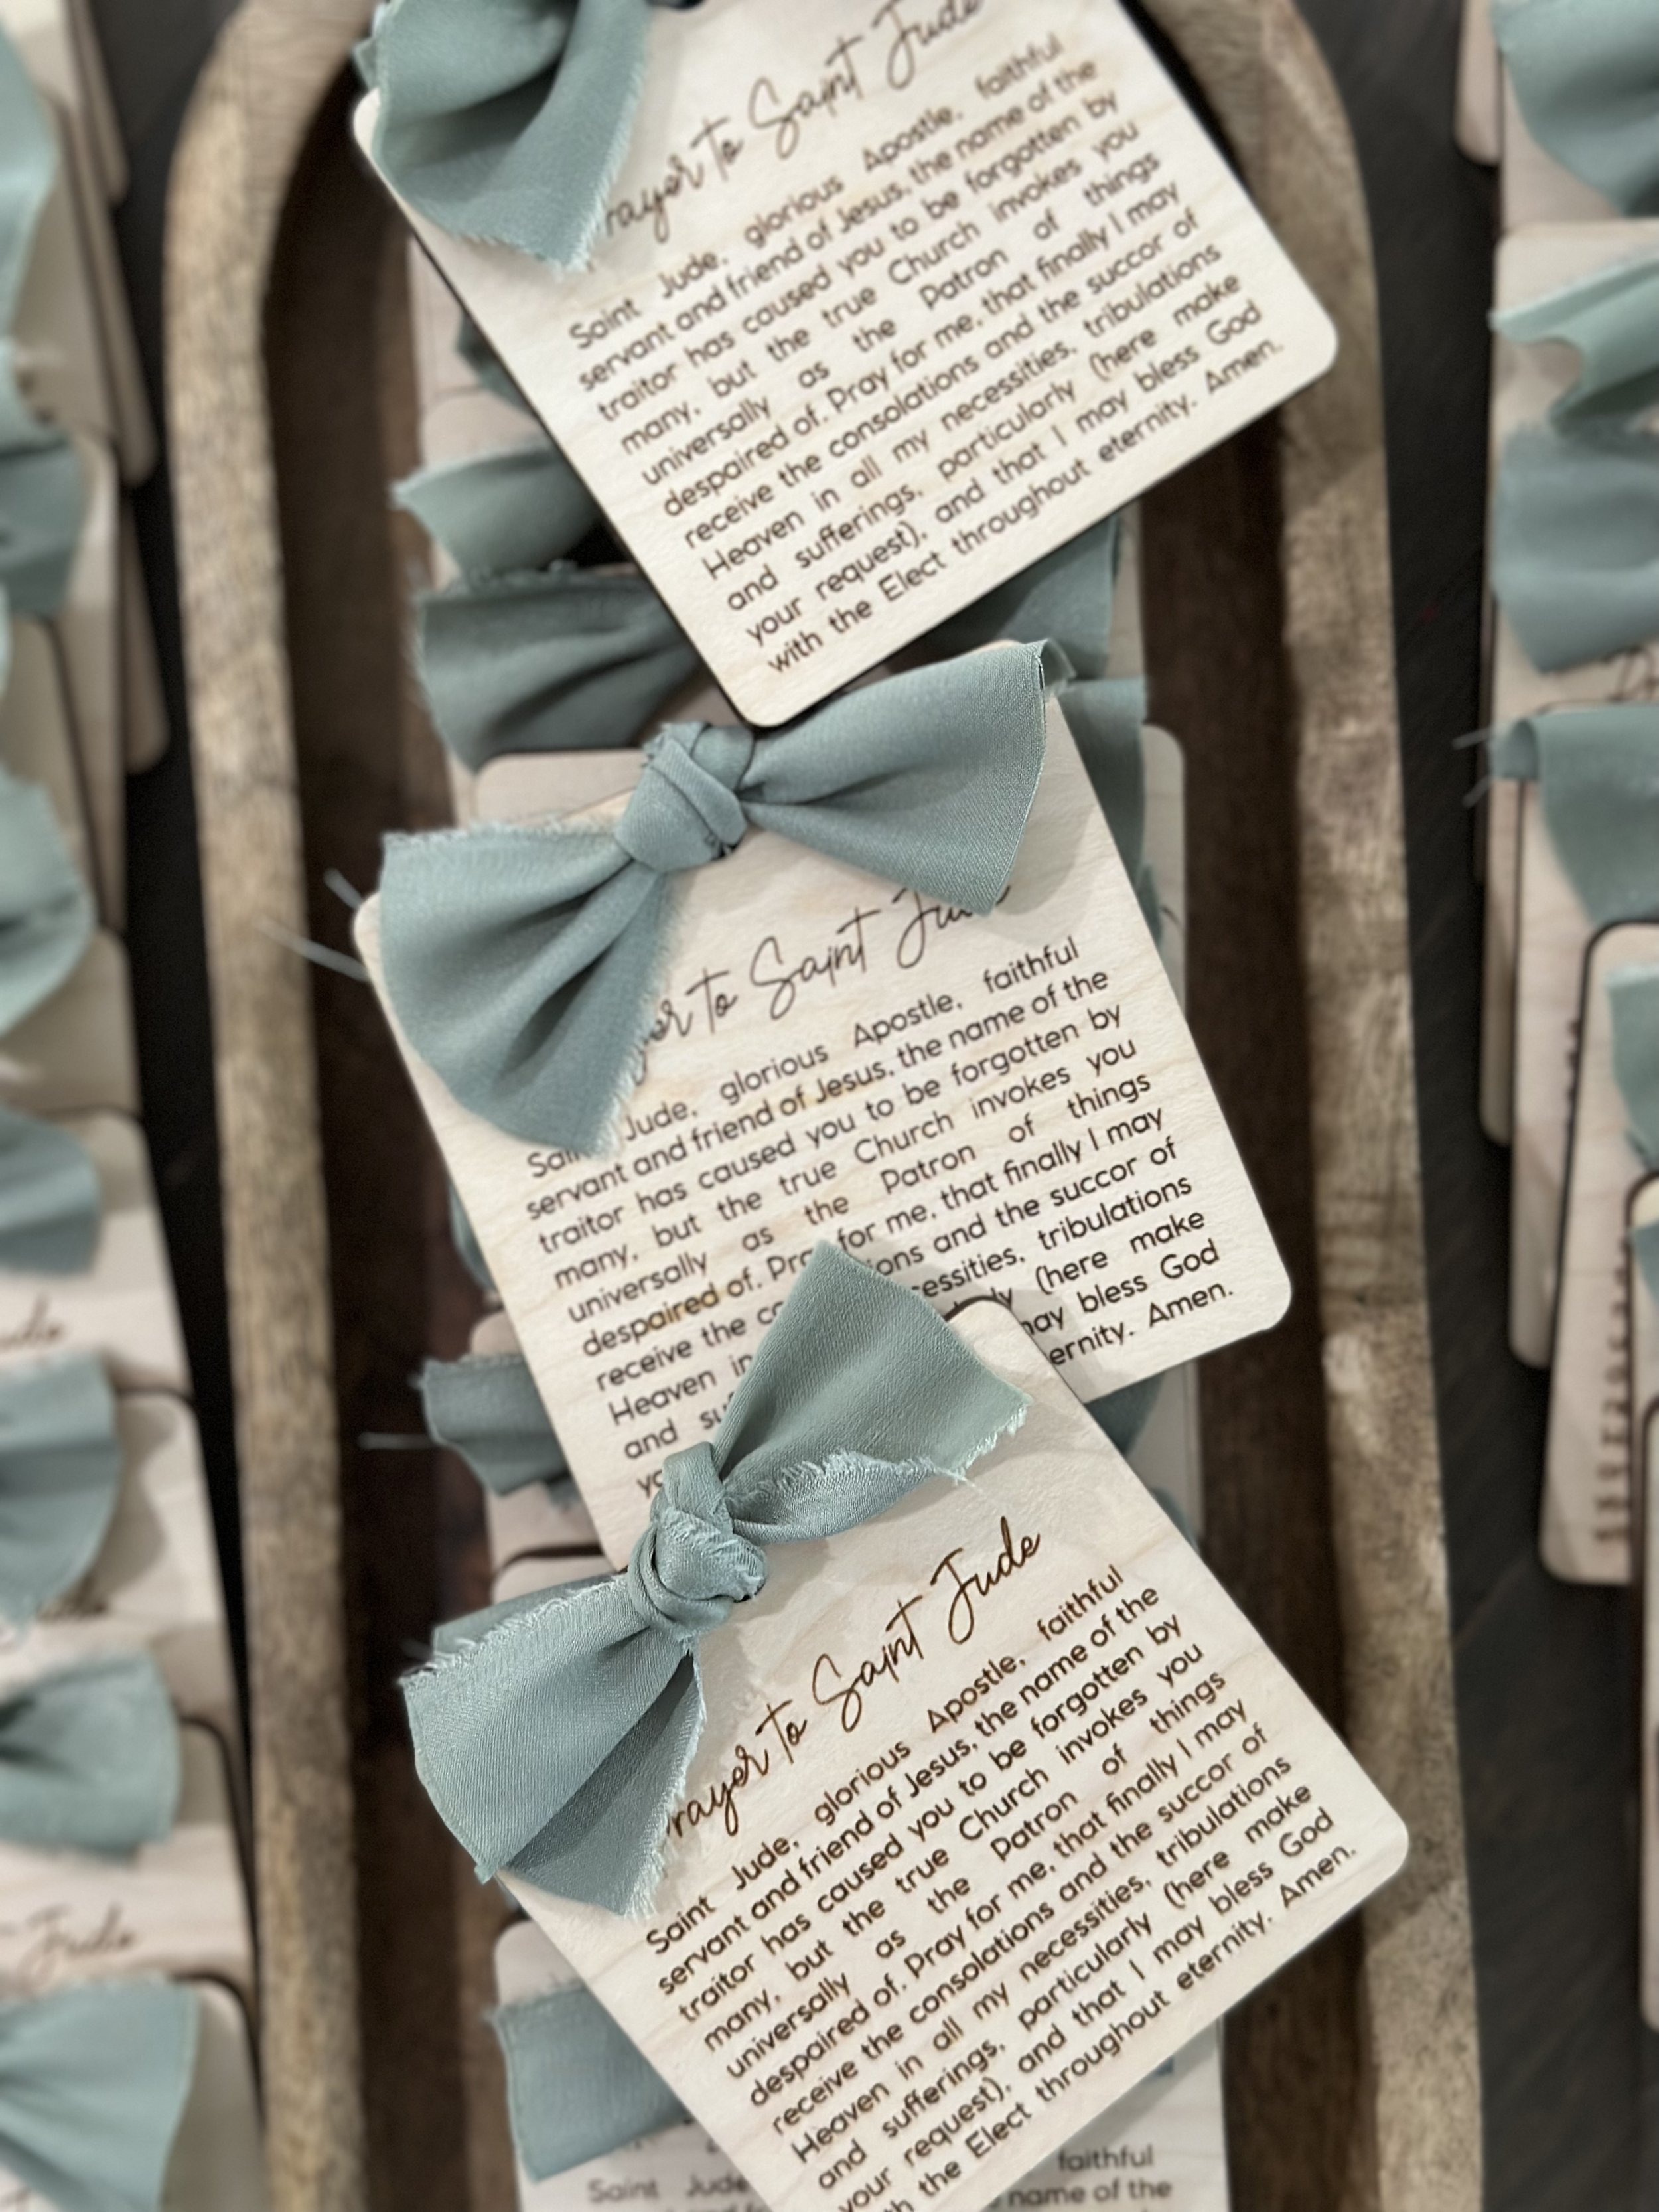 rayer to Saint Jude
Saint Jude, glorious Apostle, faithful
servant and friend of Jesus, the name of the
traitor has caused you to be forgotten by
many, but the true Church invokes you
universally as the Patron of things
despaired of. Pray for me, that finally I may
receive the consolations and the succor of
Heaven in all my necessities, tribulations
and sufferings, particularly (here make
your request), and that I may bless God
with the Elect throughout eternity. Amen.
er to Saint
Jude, glorious Apostle, faithful
servant and friend of Jesus, the name of the
traitor has caused you to be forgotten by
many, but the true Church invokes you
universally as the Patron of things
despaired of. for me, that finally I may
receive the and the succor of
Heaven in tribulations
and (here make
bless God
Amen.
rayer to Saint Jude
Saint Jude, glorious Apostle, faithful
servant and friend of Jesus, the name of the
traitor has caused you to be forgotten by
many, but the true Church invokes you
universally as the Patron of things
despaired of. Pray for me, that finally I may
receive the consolations and the succor of
Heaven in all my necessities, tribulations
and sufferings, particularly (here make
your request), and that I may bless God
the Elect throughout eternity. Amen.
Saint Jude faithful
name of the
Jude